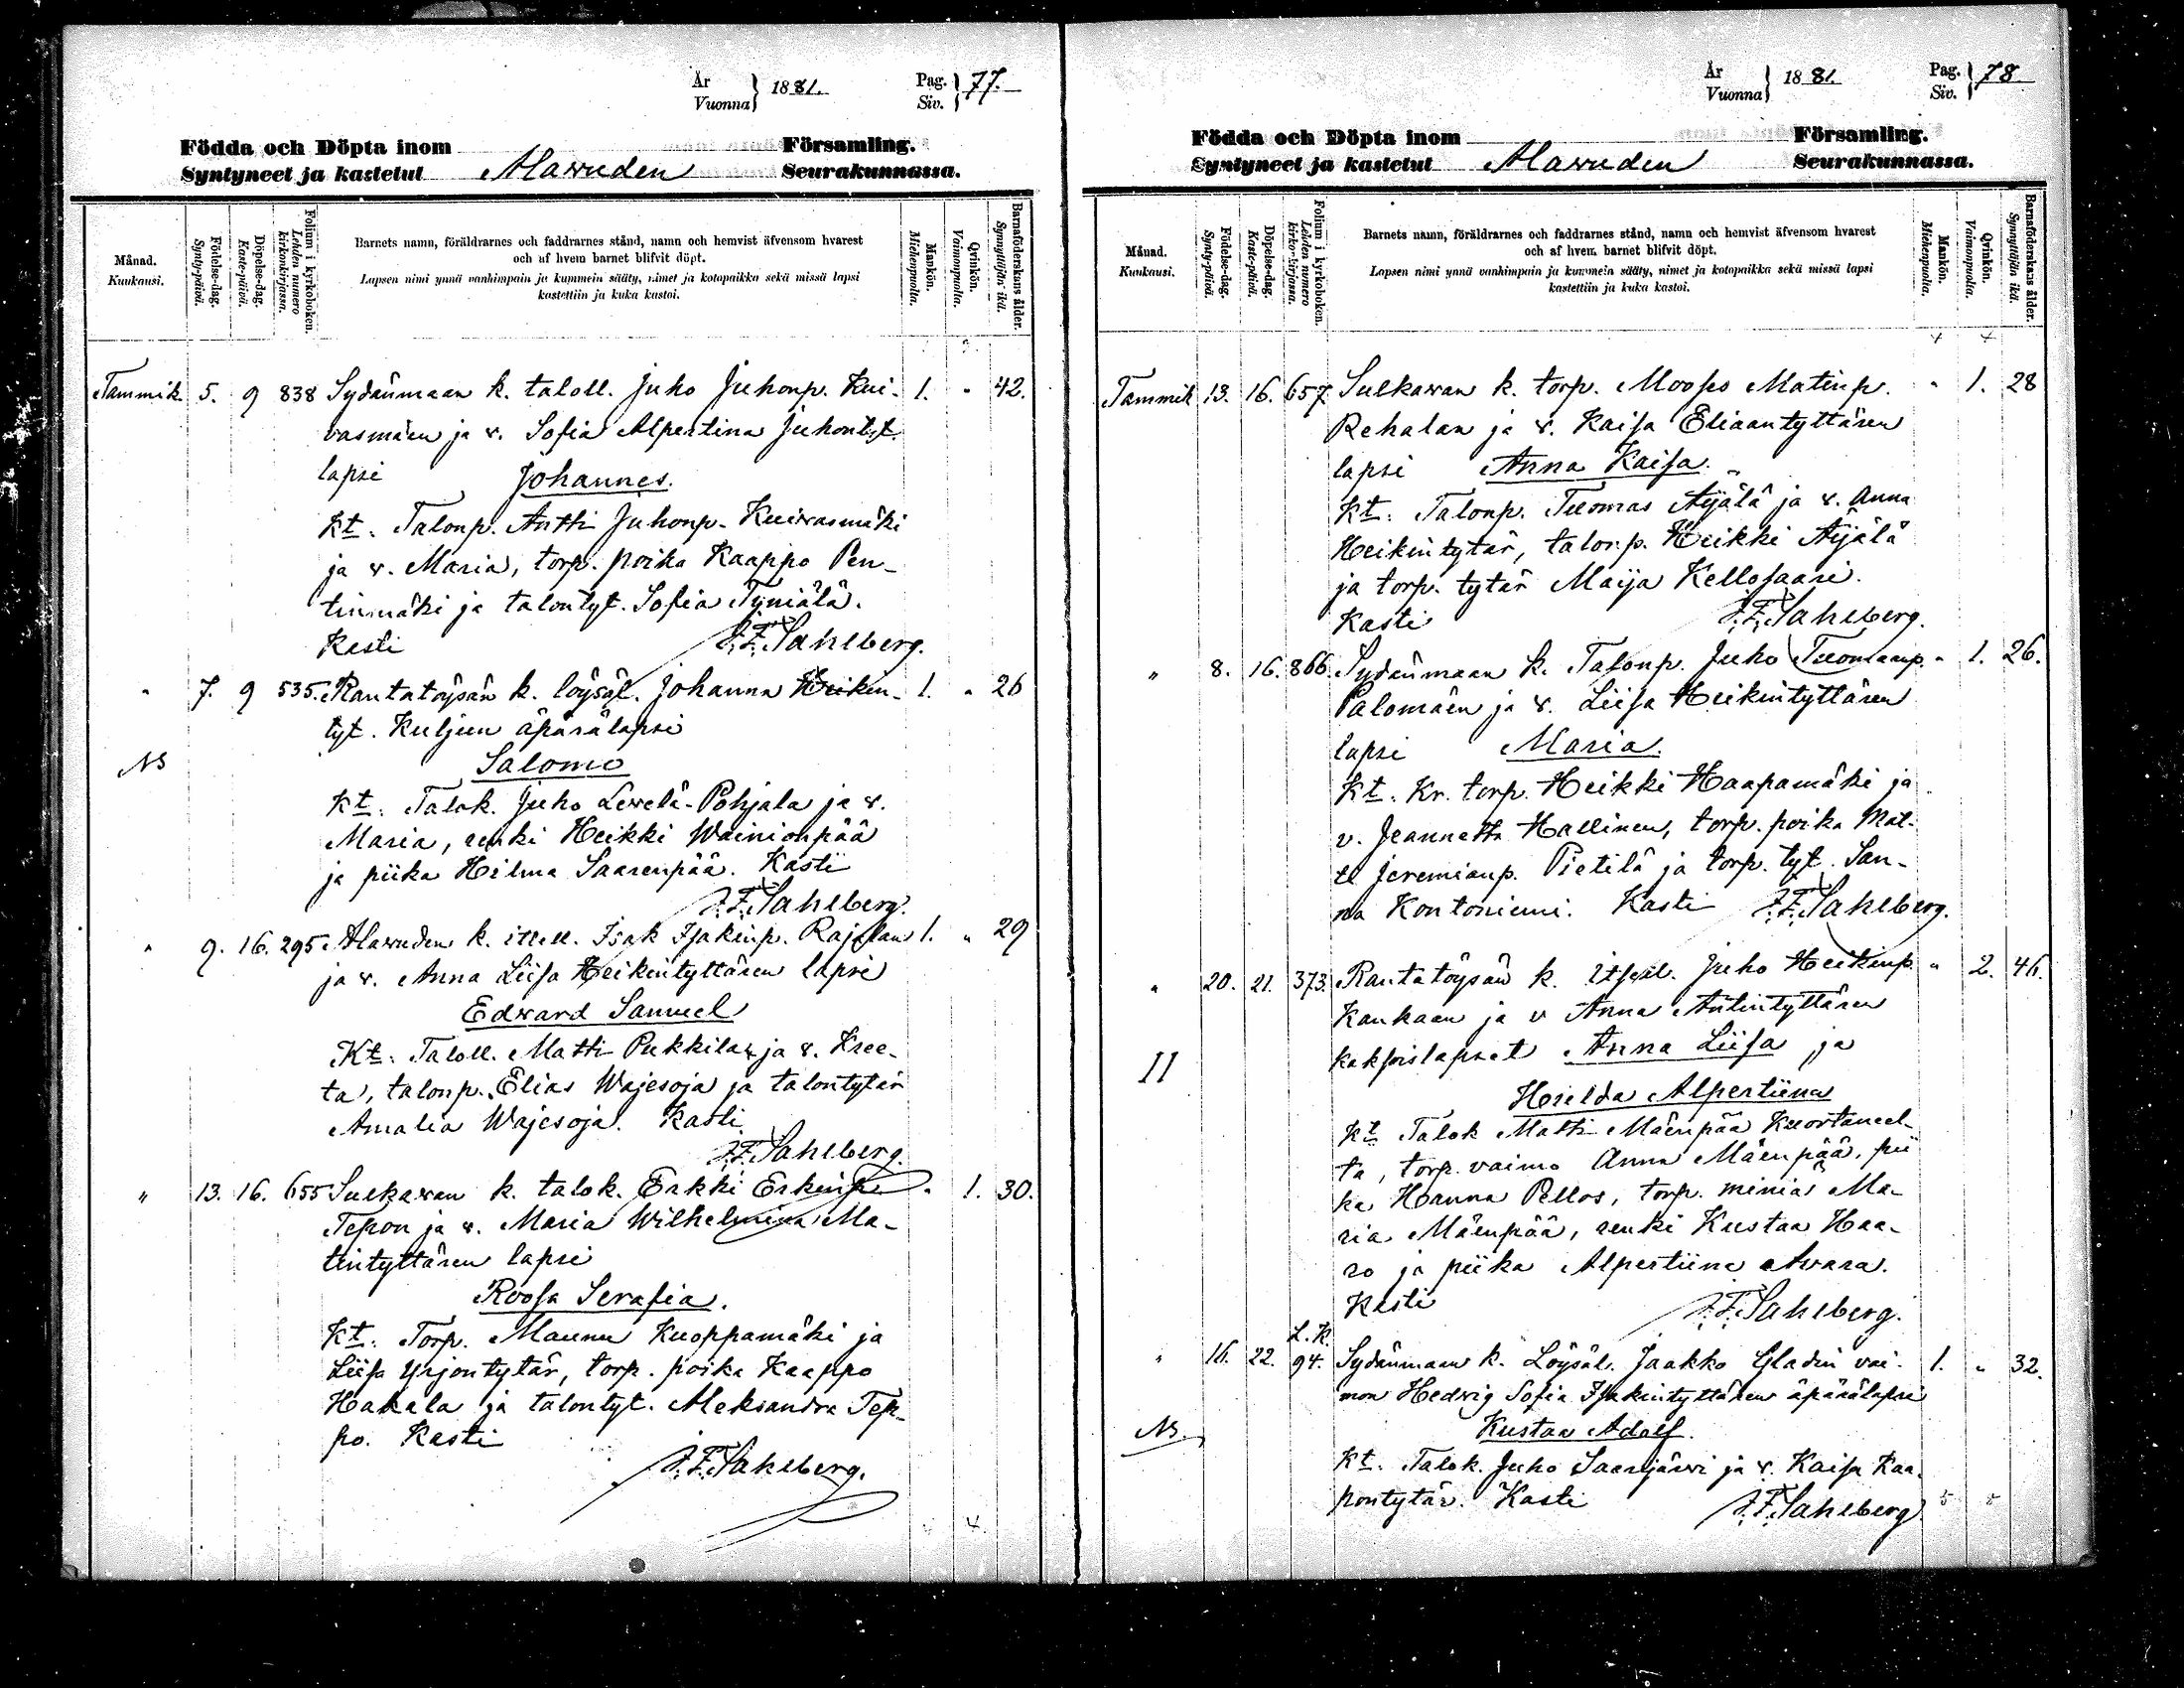 År
Vuonna } 1881. Pag.
Siv. } 77.
Födda och Döpta inom Församling.
Syntyneet ja kastetut Alavuden Seurakunnassa.
Månad.
Kuukausi.
Födelse-dag.
Synty-päivä.
Döpelse-dag.
Kaste-päivä.
Folium i kyrkoboken.
Lehden numero
kirkonkirjassa.
Barnets namn, föräldrarnes och faddrarnes stånd, namn och hemvist äfvensom hvarest
och af hvem barnet blifvit döpt.
Lapsen nimi ynnä vanhimpain ja kummein sääty, nimet ja kotopaikka sekä missä lapsi
kastettiin ja kuka kastoi.
Mankön.
Miehenpuolia.
Qvinkön.
Vaimonpuolia.
Barnaföderskans ålder.
Synnyttäjän ikä.
Tammik 5. 9 838 Sydänmaan k. taloll. Juho Juhonp. Kui- 1. " 42.
vasmäen ja v. Sofia Alpertina Juhontyt.
lapsi Johannes.
Kt. Talonp. Antti Juhonp. Kuivasmäki
ja v. Maria, torp. poika Kaappo Pen-
tinmäki ja talontyt. Sofia Tyniälä.
Kasti J.F. Sahlberg.
" 7. 9 535. Rantatöysän k. löysäl. Johanna Heikin- 1. " 26
tyt. Kuljun äpärälapsi
NB Salomo
Kt: Talok. Juho Levelä-Pohjala ja v.
Maria, renki Heikki Wainionpää
ja piika Hilma Saarenpää. Kasti
J.F. Sahlberg.
" 9. 16. 295 Alavuden k. itsell. Isak Isakinp. Rajalan 1. " 29
ja v. Anna Liisa Heikintyttären lapsi
Edvard Samuel
Kt: Taloll. Matti Pukkila ja v. Kree-
ta, talonp. Elias Wajesoja ja talontytär
Amalia Wajesoja. Kasti
J.F. Sahlberg.
" 13. 16. 655 Sulkavan k. talok. Erkki Erkinp. " 1. 30.
Tepon ja v. Maria Wilhelmina Ma-
tintyttären lapsi
Roosa Serafia.
Kt: Torp. Maunu Kuoppamäki ja
Liisa Yrjontytär, torp. poika Kaappo
Hakala ja talontyt. Aleksandra Tep-
po. Kasti
J.F. Sahlberg.
4
År
Vuonna } 1881. Pag.
Siv. } 78
Födda och Döpta inom Församling.
Syntyneet ja kastetut Alavuden Seurakunnassa.
Månad.
Kuukausi.
Födelse-dag.
Synty-päivä.
Döpelse-dag.
Kaste-päivä.
Folium i kyrkoboken.
Lehden numero
kirkonkirjassa.
Barnets namn, föräldrarnes och faddrarnes stånd, namn och hemvist äfvensom hvarest
och af hvem barnet blifvit döpt.
Lapsen nimi ynnä vanhimpain ja kummein sääty, nimet ja kotopaikka sekä missä lapsi
kastettiin ja kuka kastoi.
Mankön.
Miehenpuolia.
Qvinkön.
Vaimonpuolia.
Barnaföderskans ålder.
Synnyttäjän ikä.
4 4
Tammik 13. 16. 657. Sulkavan k. torp. Mooses Matinp. " 1. 28
Rehalan ja v. Kaisa Eliaantyttären
lapsi Anna Kaisa.
Kt: Talonp. Tuomas Äijälä ja v. Anna
Heikintytär, talonp. Heikki Äijälä
ja torp. tytär Maija Kellosaari.
Kasti J.F. Sahlberg.
" 8. 16. 866. Sydänmaan k. Talonp. Juho Tuomaanp. " 1. 26.
Palomäen ja v. Liisa Heikintyttären
lapsi Maria.
Kt. Kr. torp. Heikki Haapamäki ja
v. Jeannetta Hallinen, torp. poika Mat-
ti Jeremianp. Pietilä ja torp. tyt. San-
na Kontoniemi. Kasti J.F. Sahlberg.
" 20. 21. 373. Rantatöysän k. itsel. Juho Heikinp. " 2. 46.
Kankaan ja v Anna Antintyttären
II kaksoislapset Anna Liisa ja
Hilda Alpertiina
Kt Talok Matti Mäenpää Kuortaneel-
ta, torp. vaimo Anna Mäenpää, pii
ka Hanna Pellos, torp. miniä Ma-
ria Mäenpää, renki Kustaa Haa-
ro ja piika Alpertiina Avara.
Kasti J.F. Sahlberg.
L.K.
" 16. 22. 94. Sydänmaan k. Löysäl. Jaakko Gladin vai- 1. " 32.
mon Hedvig Sofia Isakintyttären äpärälapsi
NB. Kustaa Adolf.
Kt. Talok. Juho Saarijärvi ja v. Kaisa Kaa-
pontytär. Kasti J.F. Sahlberg
5 5